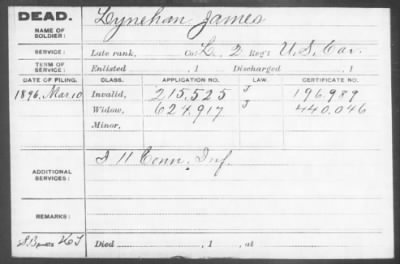 DEAD.
NAME OF SOLDIER: Lynehan James
SERVICE: Late rank, Co. L. 2 Reg't U.S. Cav.
TERM OF SERVICE: Enlisted , 1 Discharged , 1
DATE OF FILING. CLASS. APPLICATION NO. LAW. CERTIFICATE NO.
1896. Mar. 10 Invalid, 215,525 J 196,989
Widow, 624,917 J 440,046
Minor,
ADDITIONAL SERVICES: I 11 Conn. Inf.
REMARKS:
Died , 1 , at